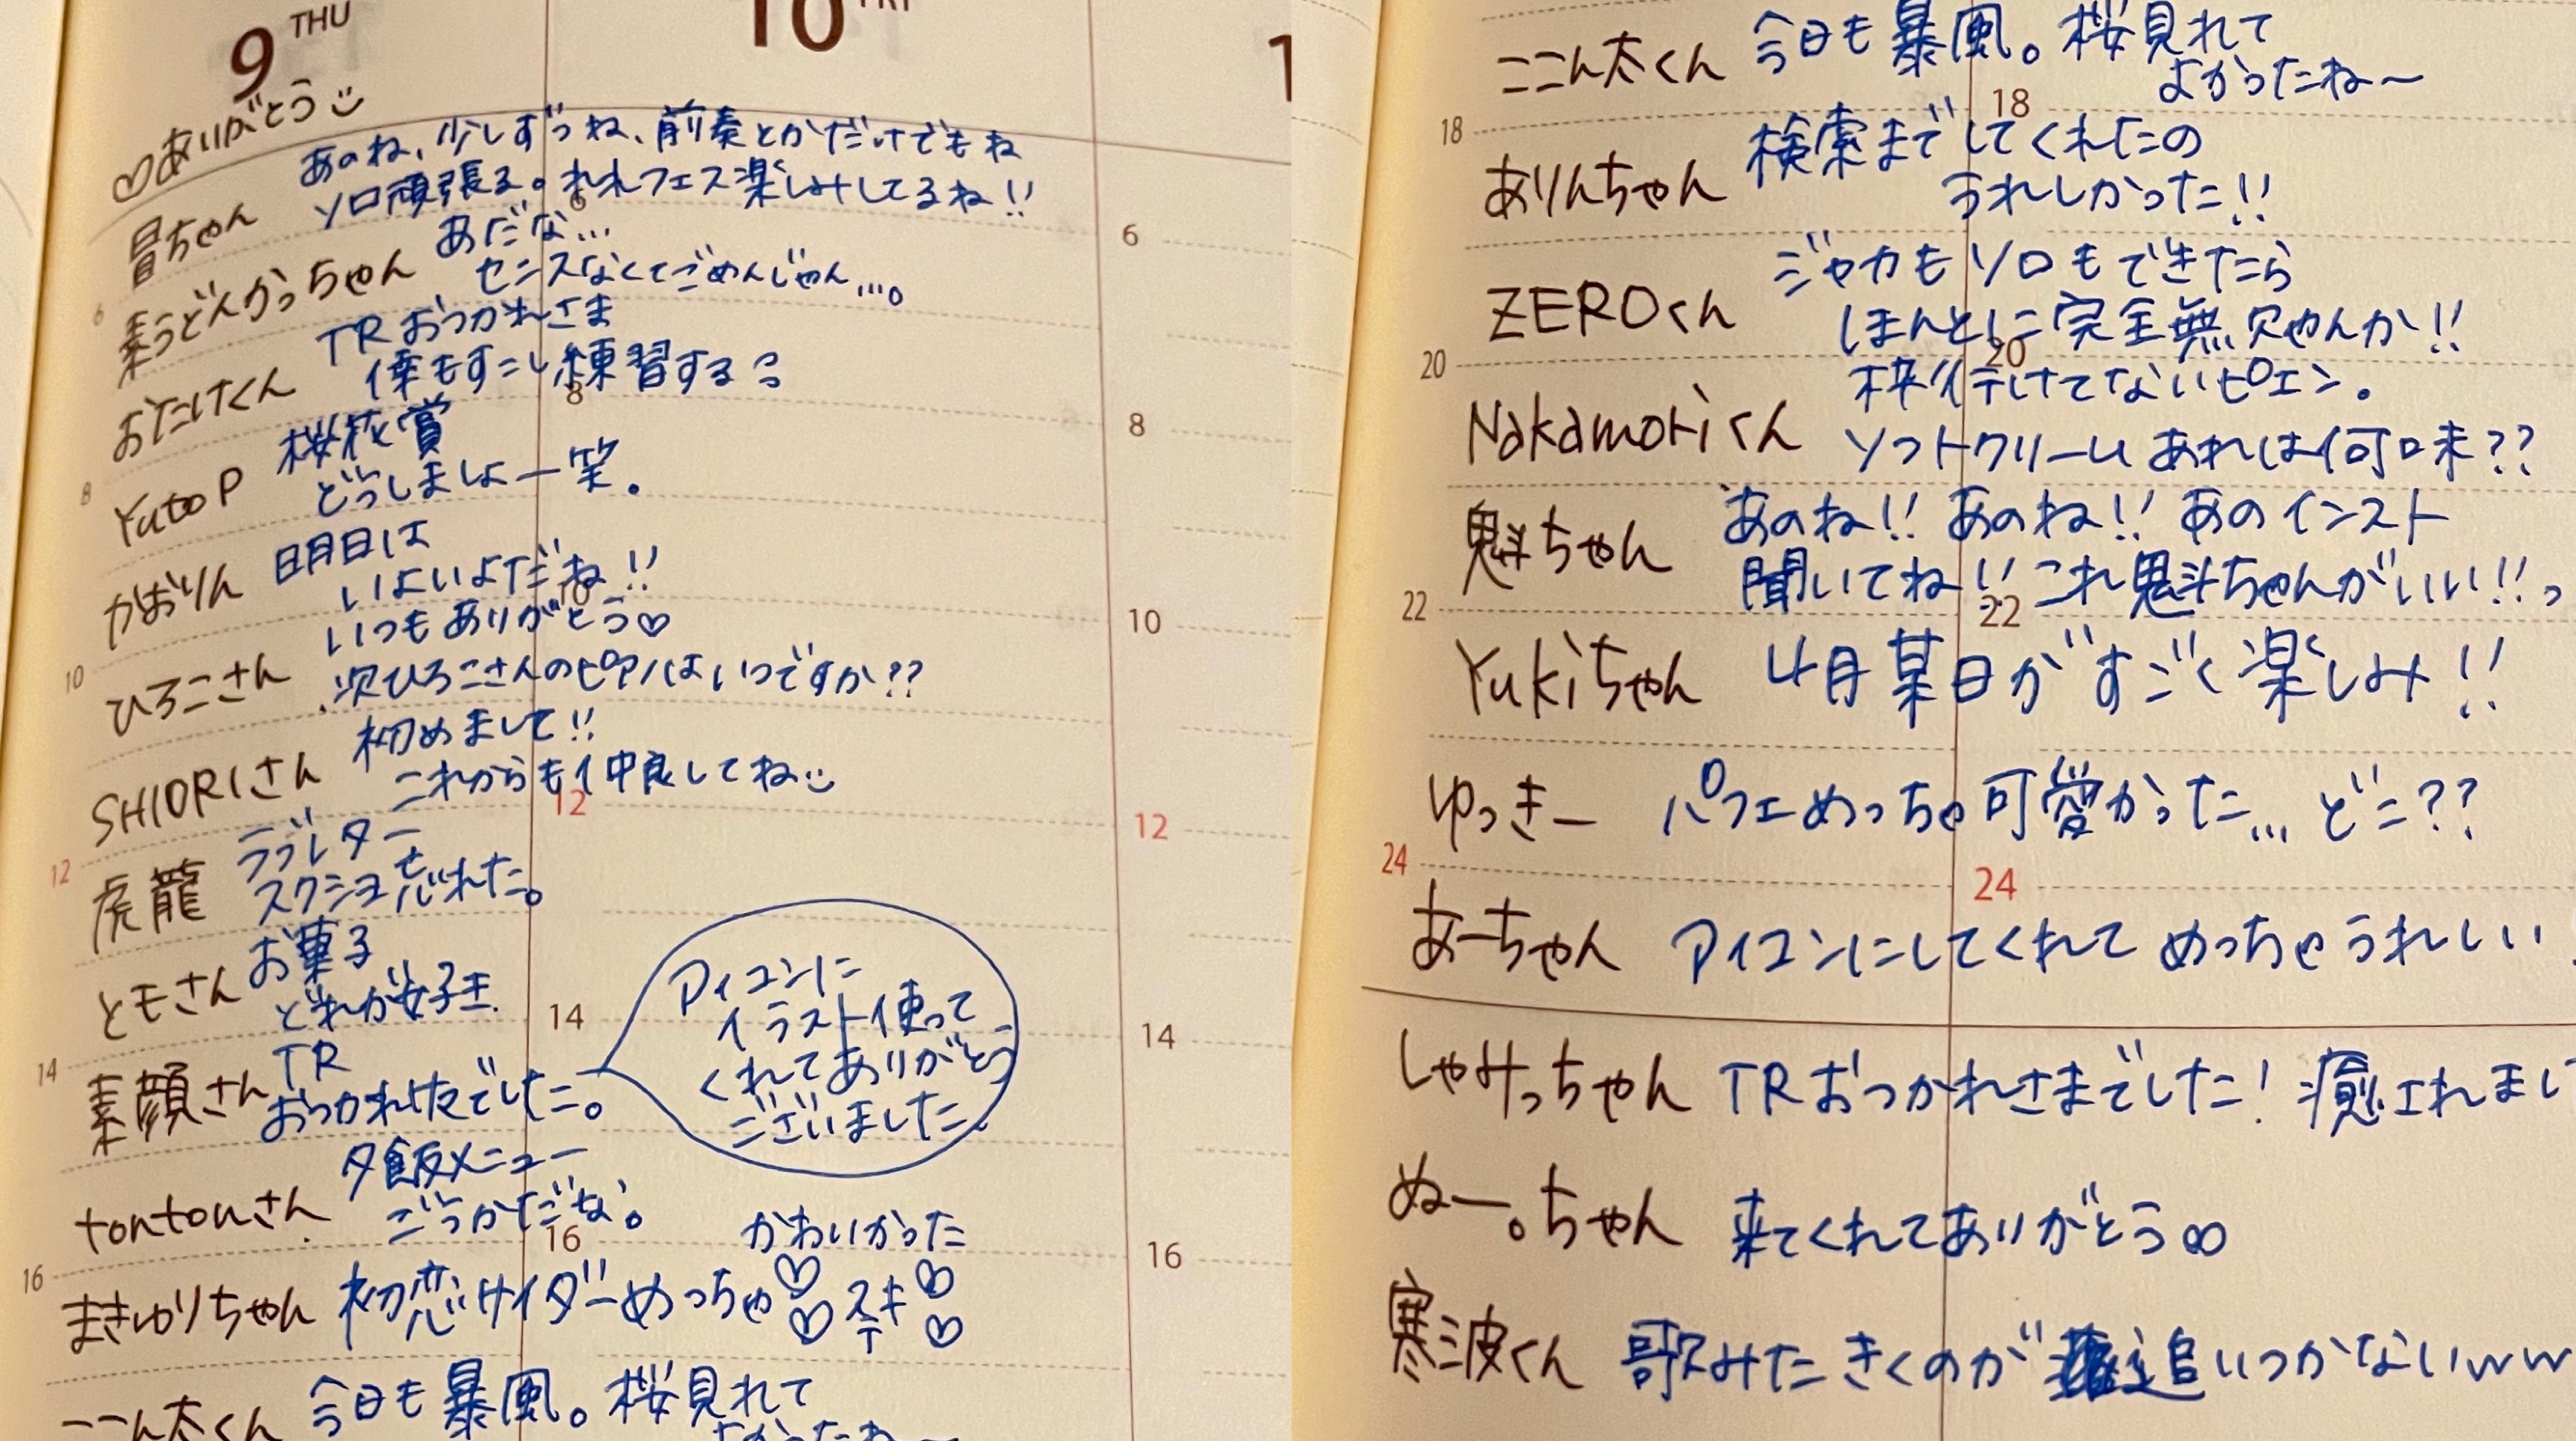 9 THU
10 FRI
♡ありがとう
冒ちゃん あのね、少しずつね、前奏とかだけでもね
ソロ頑張る。れれフェス楽しみしてるね!!
素うどんかっちゃん あだな...
センスなくてごめんじゃん...。
おたけくん TRおつかれさま
僕もすこし練習する
Yuto P 桜花賞
どうしましょー笑。
かおりん 明日は
いよいよだね!!
ひろこさん いつもありがとう♡
次ひろこさんのピアノはいつですか??
SHIORIさん 初めまして!!
これからも仲良してね
虎龍 ラブレター
スクショ忘れた。
ともさん お菓子
どれが好き
素顔さん TR
おつかれさまでした。
アイコンに
イラスト使って
くれてありがとう
ございました
tontonさん 夕飯メニュー
ごうかだな。
まきゆりちゃん 初恋サイダーめっちゃ
かわいかった
♡♡ステキ♡♡
ここん太くん 今日も暴風。桜見れて
よかったね〜
6
8
10
12
14
16
ここん太くん 今日も暴風。桜見れて
よかったね〜
18
ありんちゃん 検索までしてくれたの
うれしかった!!
ZEROくん ジャカもソロもできたら
ほんとに完全無欠やんか!!
20
Nakamoriくん 枠行けてないピエン。
ソフトクリームあれは何味??
魁ちゃん あのね!! あのね!! あのインスト
聞いてね!! これ魁斗ちゃんがいい!!っ
22
Yukiちゃん 4月某日がすごく楽しみ!!
ゆっきー パフェめっちゃ可愛かった... どこ??
24
あーちゃん アイコンにしてくれて めっちゃうれしい
しゃみっちゃん TRおつかれさまでした! 癒されまし
ぬー。ちゃん 来てくれてありがとう∞
寒波くん 歌みたきくのが 追いつかないww